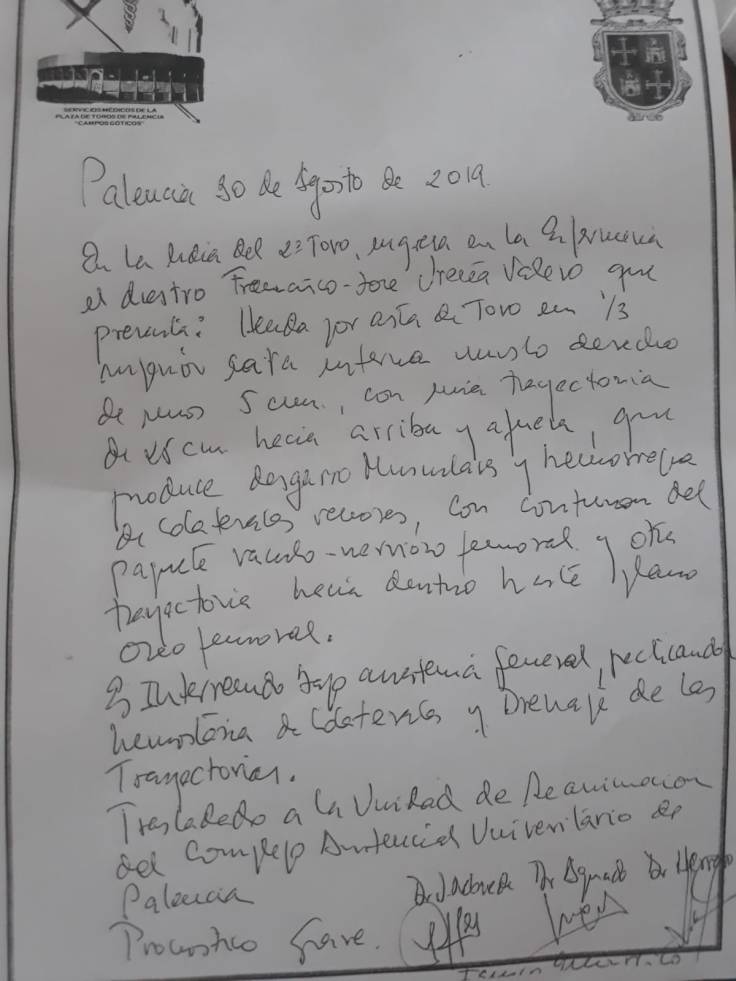 SERVICIOS MÉDICOS DE LA
PLAZA DE TOROS DE PALENCIA
"CAMPOS GÓTICOS"
Palencia 30 de Agosto de 2019.
En la lidia del 2º Toro, ingresa en la Enfermeria
el diestro Francisco-Jose Ureña Valero que
presenta: Herida por asta de Toro en 1/3
superior cara interna muslo derecho
de unos 5 cm., con una trayectoria
de 25 cm hacia arriba y afuera, que
produce desgarro Musculares y hemorragia
de colaterales venosos, con contusion del
paquete vasculo-nervioso femoral y otra
trayectoria hacia dentro hasta plano
oseo femoral.
Es Intervenido bajo anestesia general, practicando
hemostasia de colaterales y Drenaje de las
Trayectorias.
Trasladado a la Unidad de Reanimacion
del Complejo Asistencial Universitario de
Palencia
Dr. Dr. Aguado Dr. Herrero
Pronostico Grave.